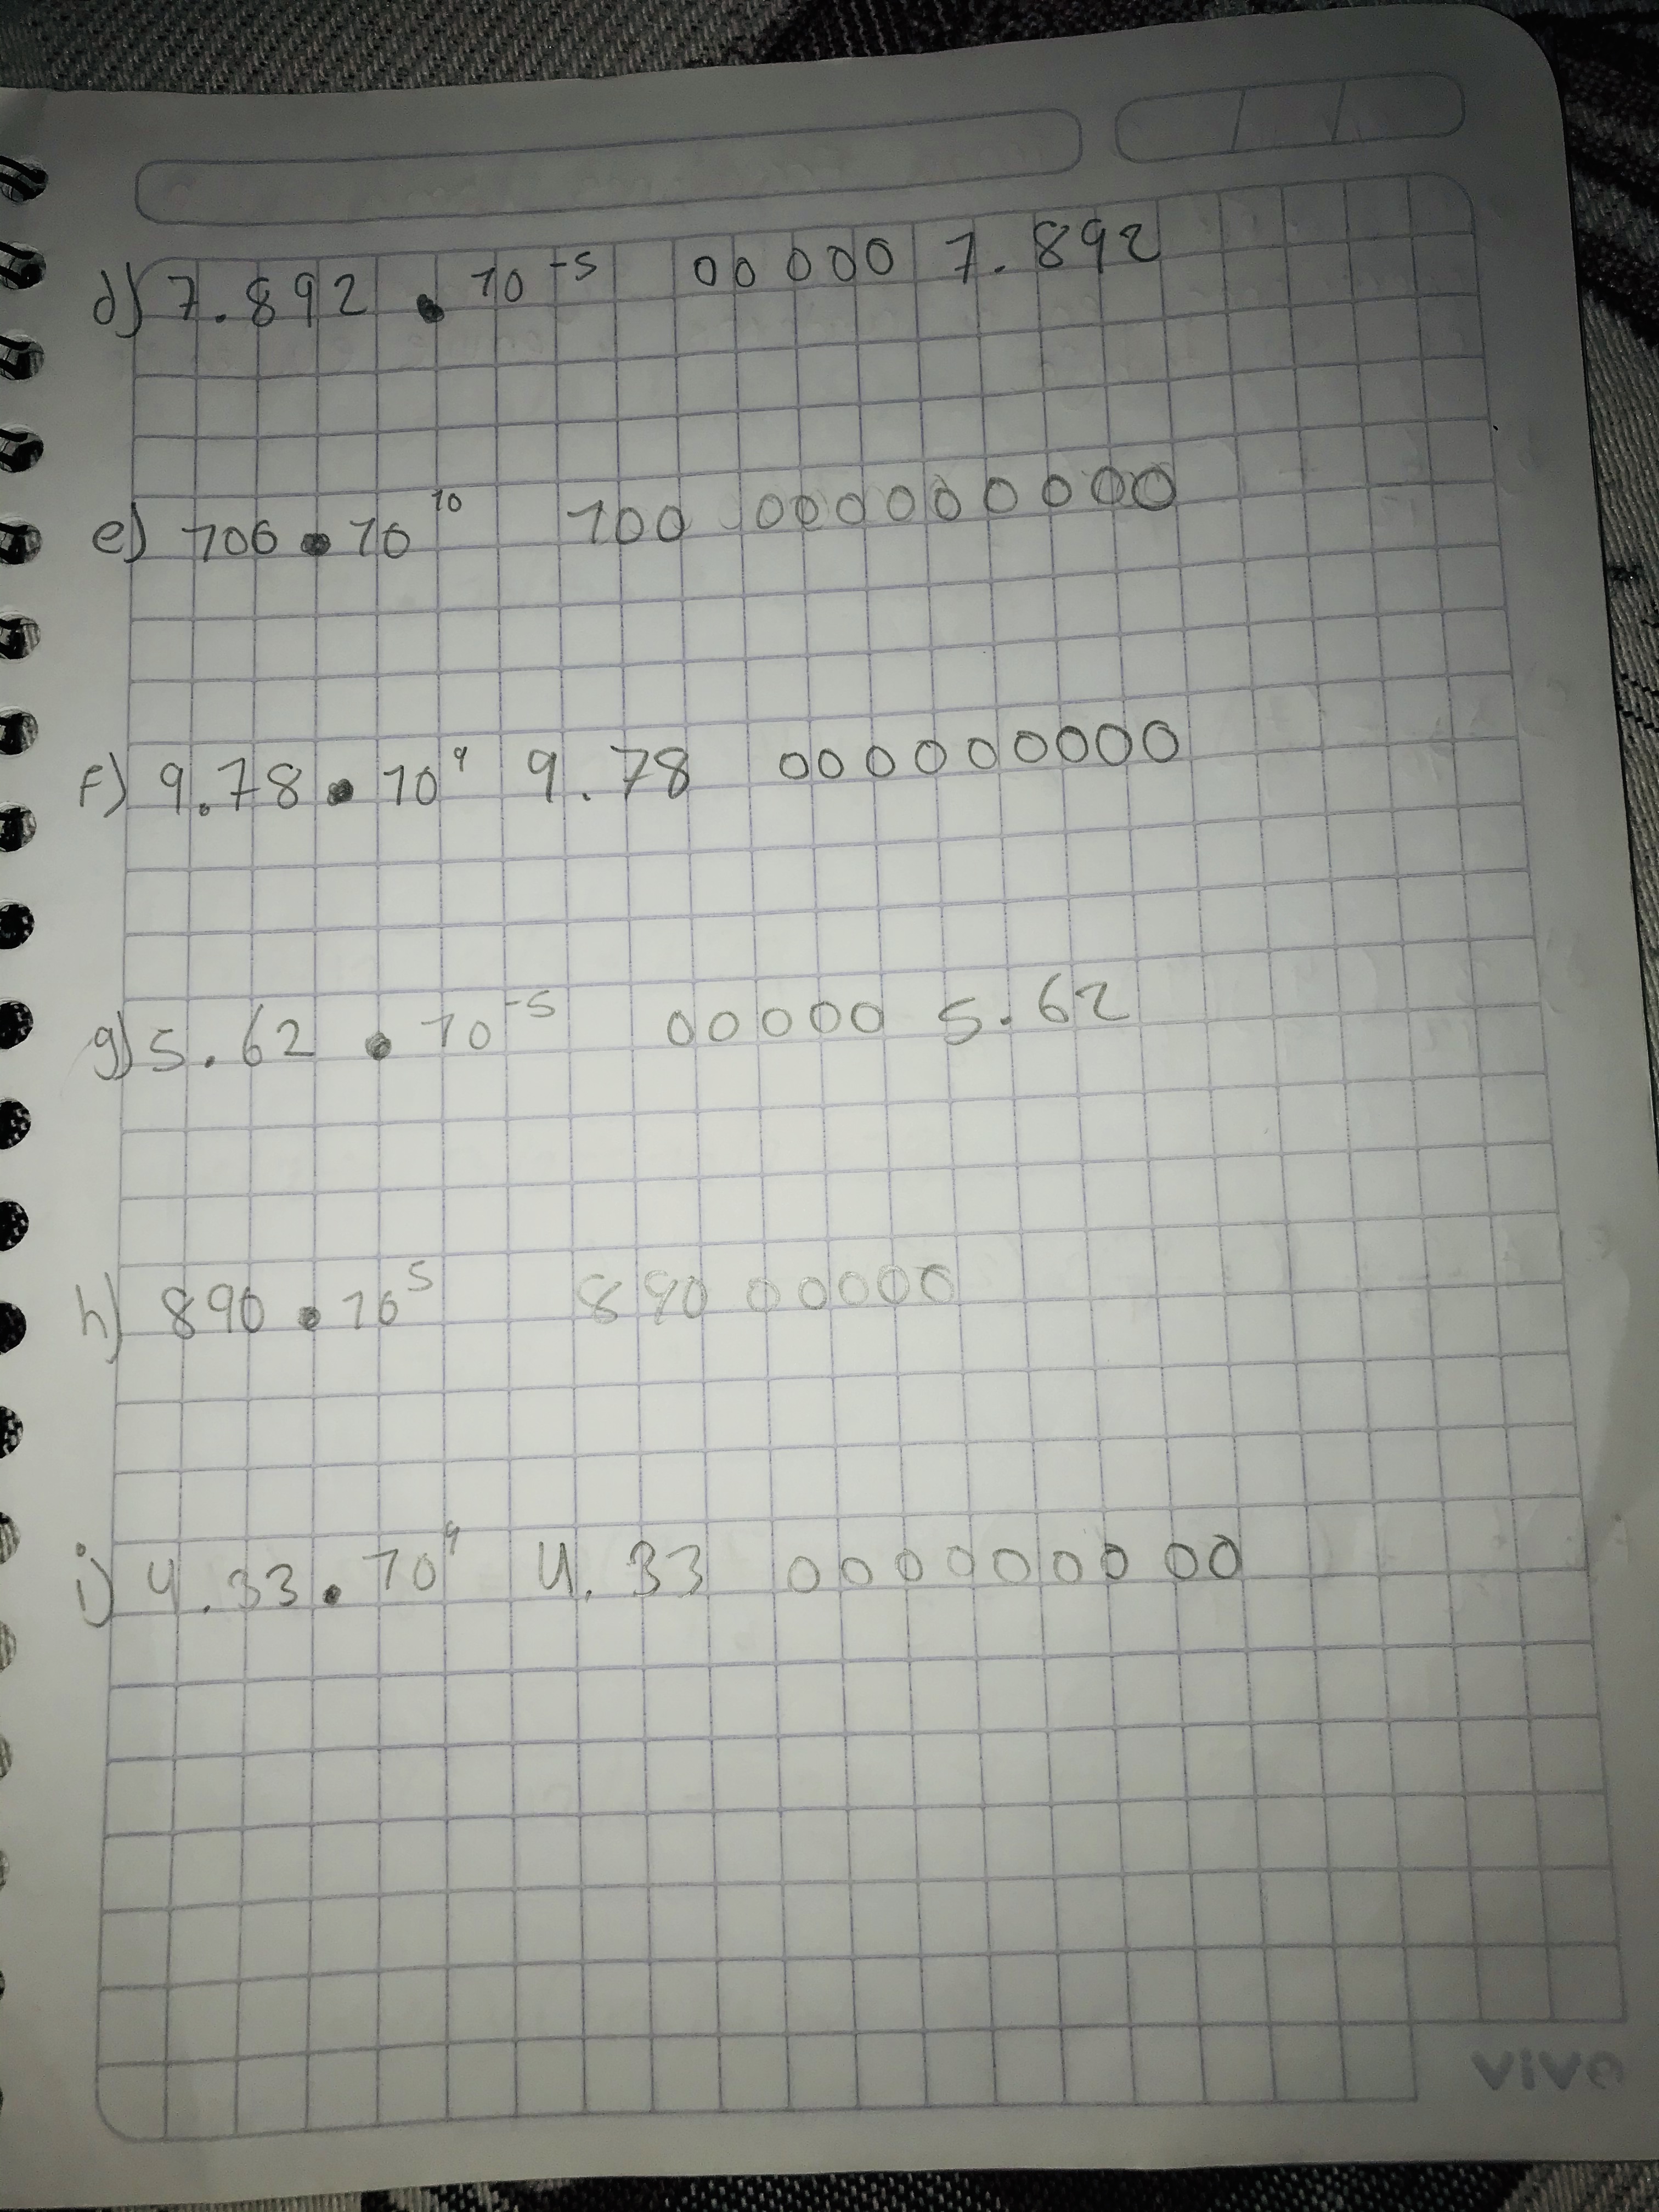 d) 7.892 • 10⁻⁵ 00000 7.892
e) 100 • 10¹⁰ 100 000000000
f) 9.78 • 10⁹ 9.78 000000000
g) 5.62 • 10⁻⁵ 00000 5.62
h) 890 • 10⁵ 890 00000
i) 4.33 • 10⁹ 4.33 000000000
vivo